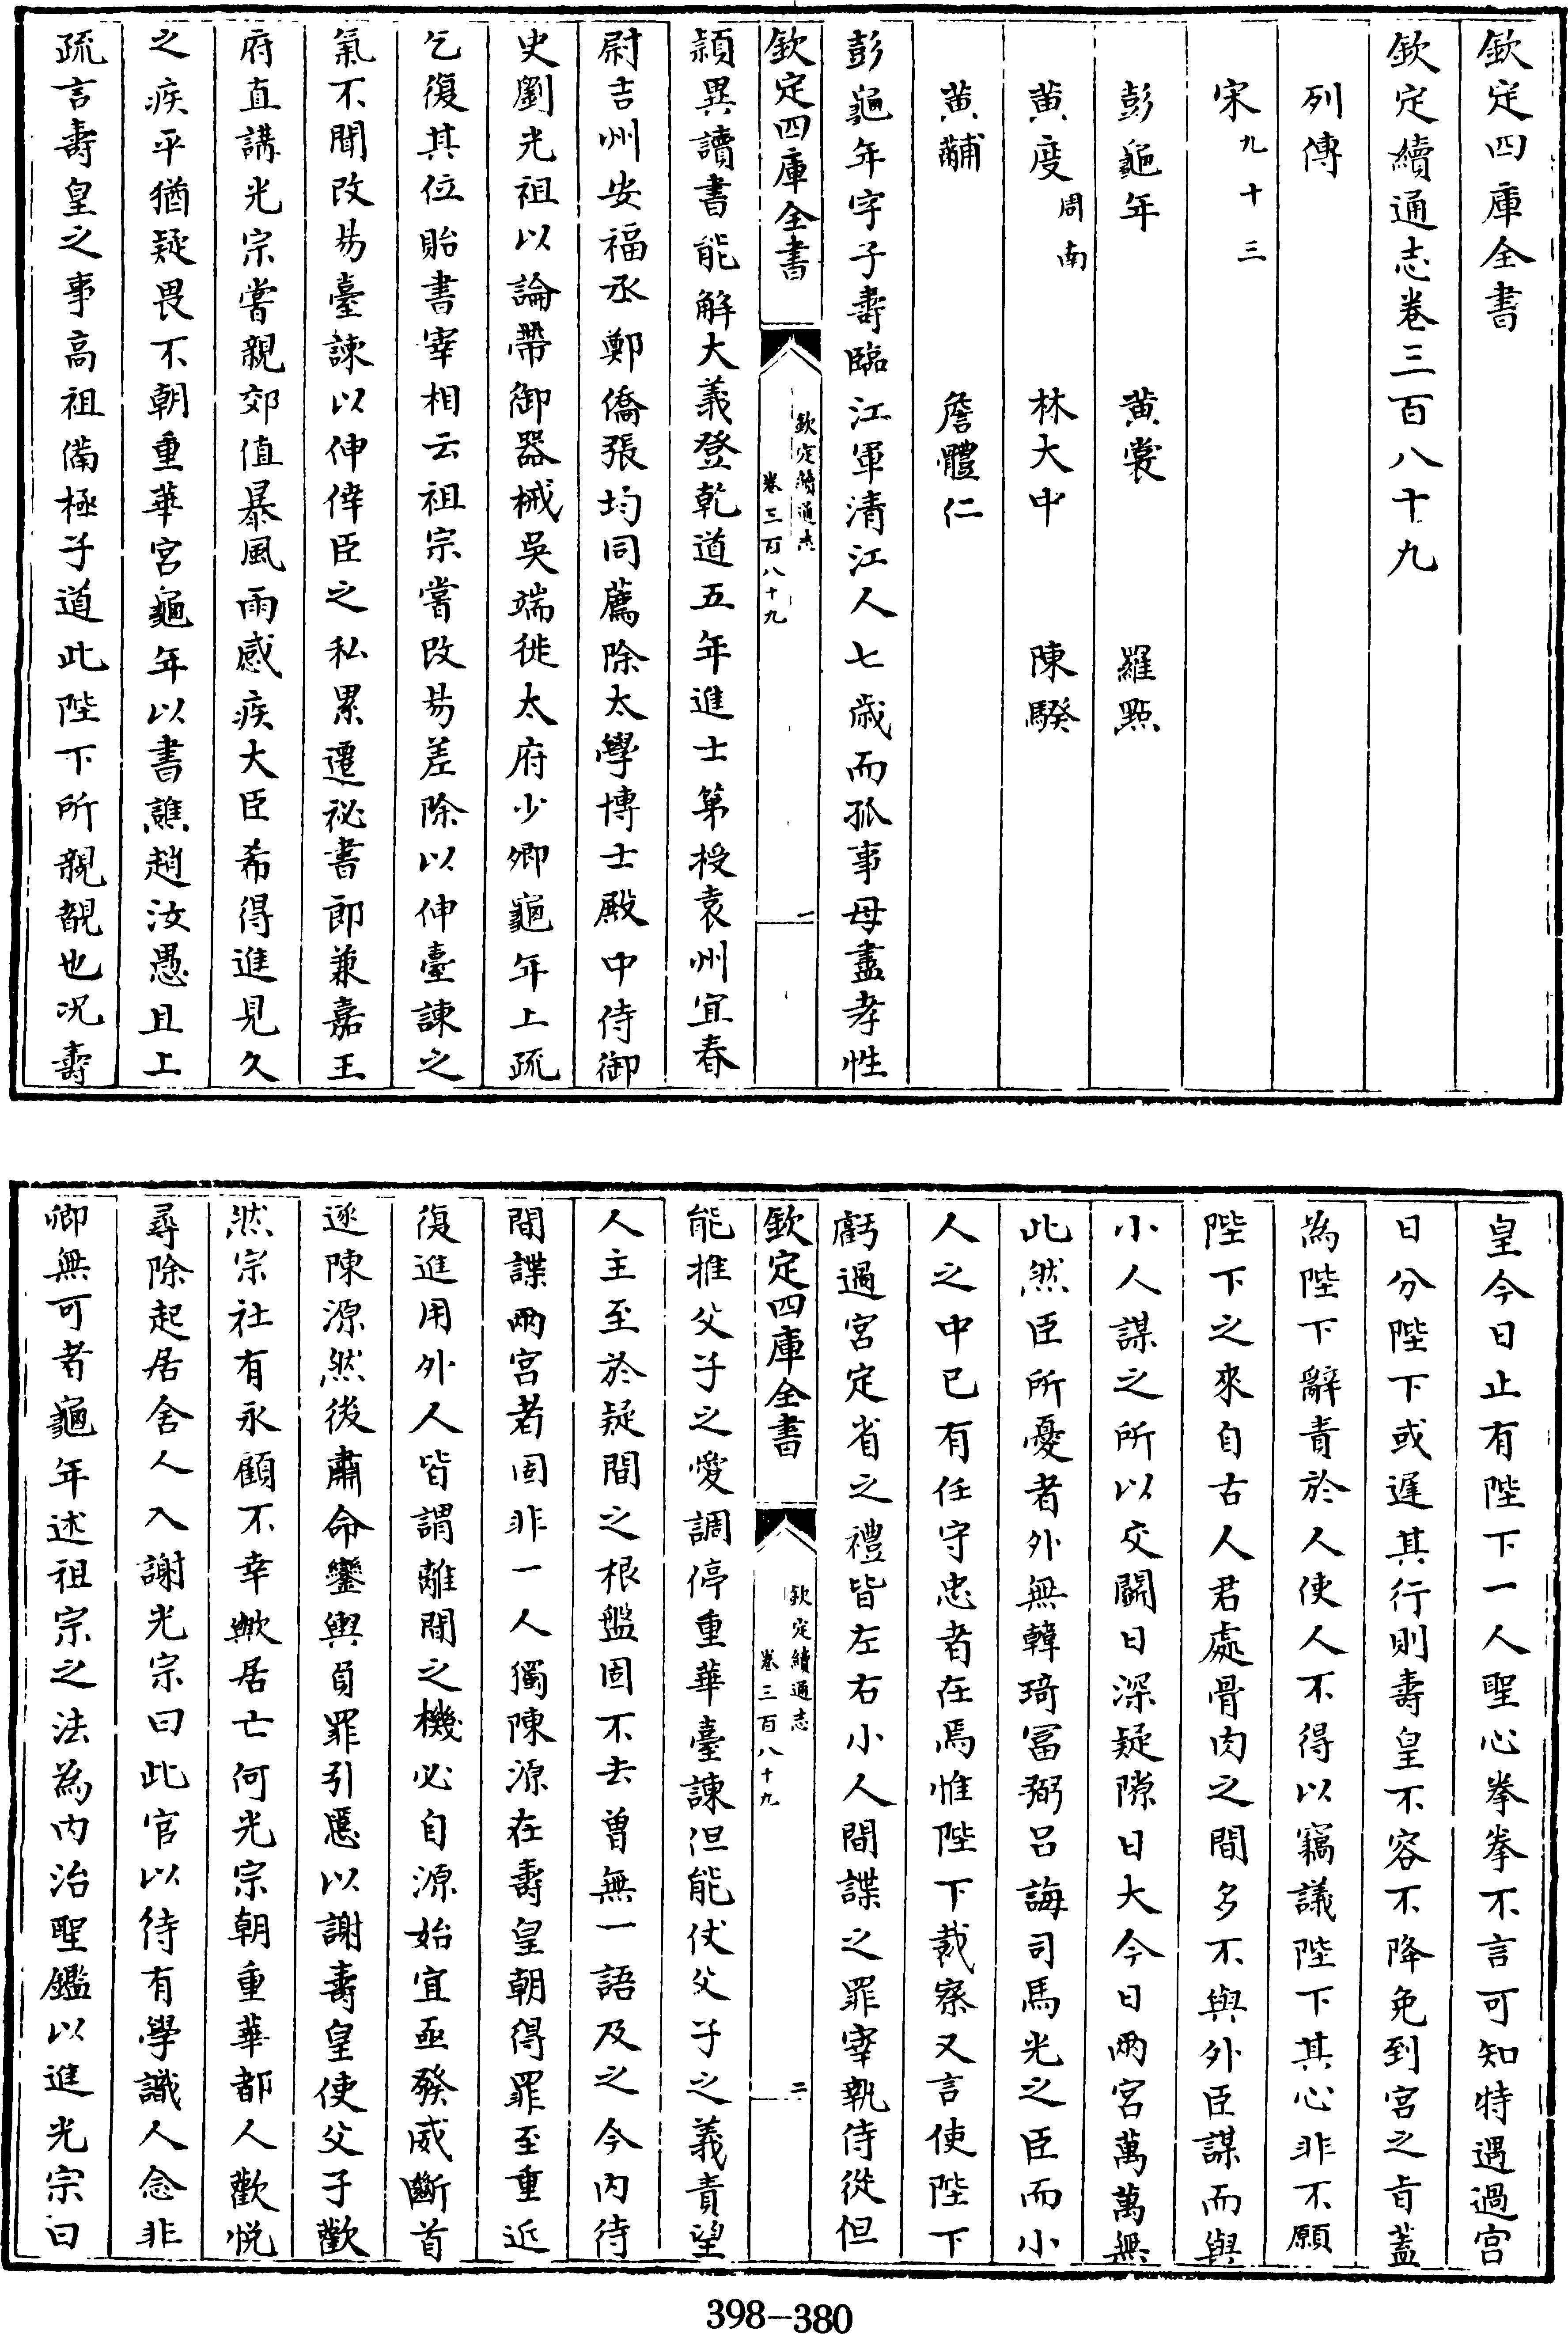 欽定四庫全書
欽定續通志卷三百八十九
列傳
宋九十三
彭龜年　黄裳　羅㸃
黄度周南　林大中　陳騤
黄黼　詹體仁
彭龜年字子壽臨江軍清江人七歳而孤事母盡孝性
欽定四庫全書　欽定續通志卷三百八十九　一
頴異讀書能解大義登乾道五年進士第授袁州宜春
尉吉州安福丞鄭僑張均同薦除太學博士殿中侍御
史劉光祖以論帶御器械吳端徙太府少卿龜年上疏
乞復其位貽書宰相云祖宗嘗改易差除以伸臺諌之
氣不聞改易臺諌以伸倖臣之私累遷祕書郎兼嘉王
府直講光宗嘗親郊值暴風雨感疾大臣希得進見久
之疾平猶疑畏不朝重華宮龜年以書譙趙汝愚且上
疏言壽皇之事高祖備極子道此陛下所親覩也况壽
皇今日止有陛下一人聖心拳拳不言可知特遇過宫
日分陛下或遲其行則壽皇不容不降免到宮之㫖蓋
為陛下辭責於人使人不得以竊議陛下其心非不願
陛下之來自古人君處骨肉之間多不與外臣謀而與
小人謀之所以交闘日深疑隙日大今日兩宮萬萬無
此然臣所憂者外無韓琦冨弼呂誨司馬光之臣而小
人之中已有任守忠者在焉惟陛下裁察又言使陛下
虧過宮定省之禮皆左右小人間諜之罪宰執侍從但
欽定四庫全書　欽定續通志卷三百八十九　二
能推父子之愛調停重華臺諌但能仗父子之義責望
人主至於疑間之根盤固不去曽無一語及之今内侍
間諜兩宮者固非一人獨陳源在壽皇朝得罪至重近
復進用外人皆謂離間之機必自源始宜亟發威斷首
逐陳源然後肅命鑾輿負罪引慝以謝壽皇使父子歡
然宗社有永顧不幸歟居亡何光宗朝重華都人歡悦
尋除起居舍人入謝光宗曰此官以待有學識人念非
卿無可者龜年述祖宗之法為内治聖鑑以進光宗曰
398-380